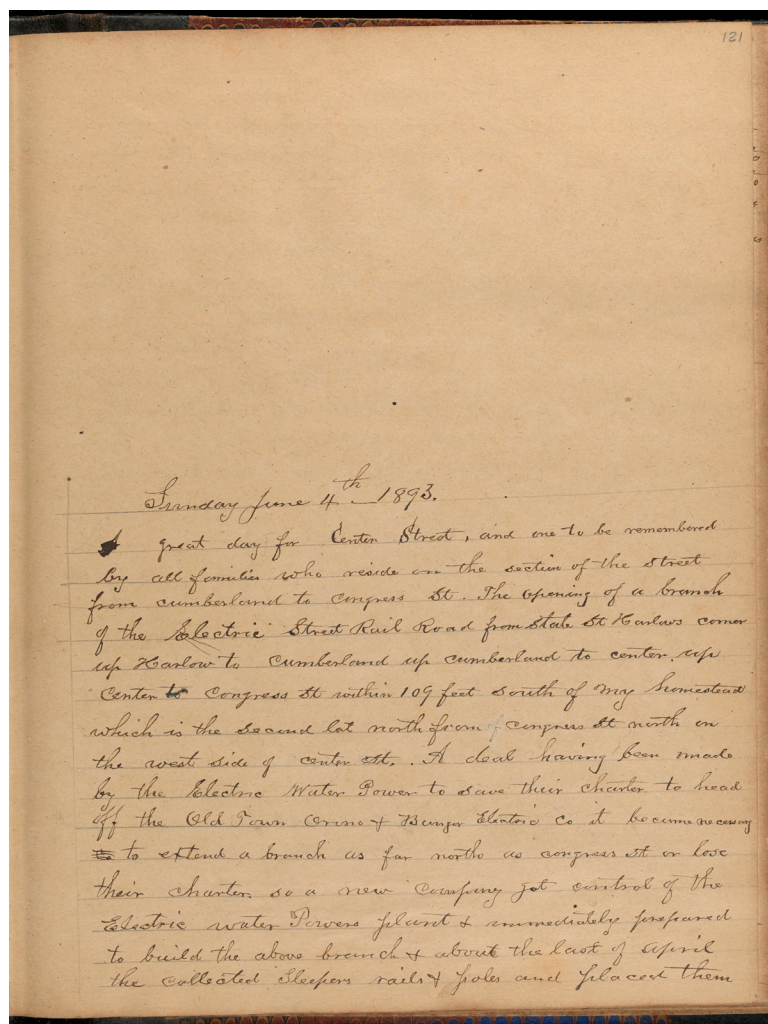 121
Sunday June 4th - 1893.
A great day for Center Street, and one to be remembered
by all families who reside on the section of the street
from cumberland to congress St. The opening of a branch
of the Electric Street Rail Road from State St Harlows corner
up Harlow to Cumberland up cumberland to center, up
Center to Congress St within 109 feet South of my homestead
which is the second lot north from of congress St north on
the west side of center St. . A deal having been made
by the Electric Water Power to save their charter to head
off the Old Town Orono & Bangor Electric Co it became necessary
to to extend a branch as far north as congress St or lose
their charter so a new Company got control of the
Electric water Powers plant & immediately prepared
to build the above branch & about the last of April
the collected Sleepers rails & poles and placed them